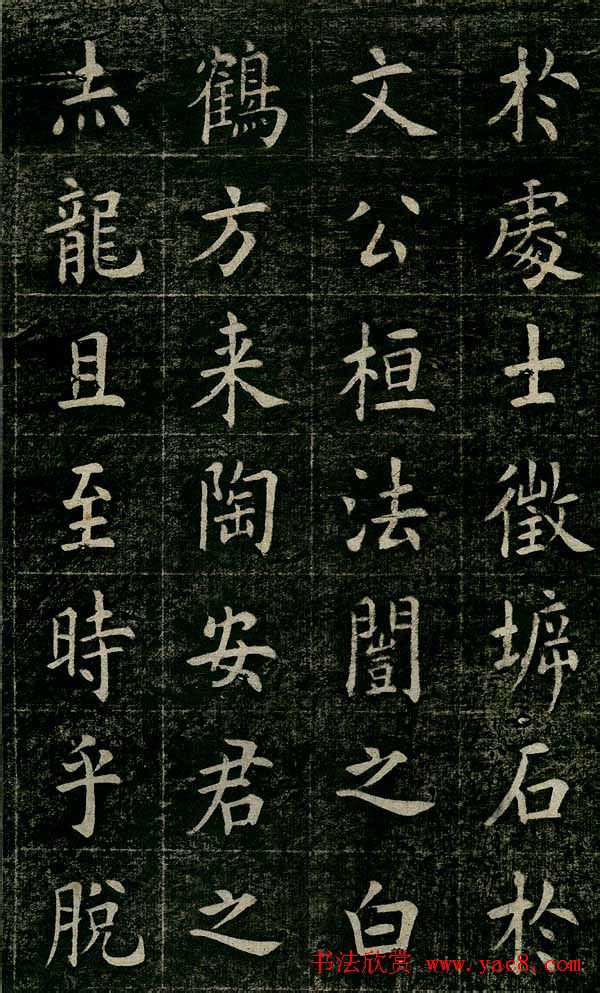 於處士徵㙤石於
文公桓法闓之白
鶴方来陶安君之
赤龍且至時乎脫
书法欣赏 www.yac8.com